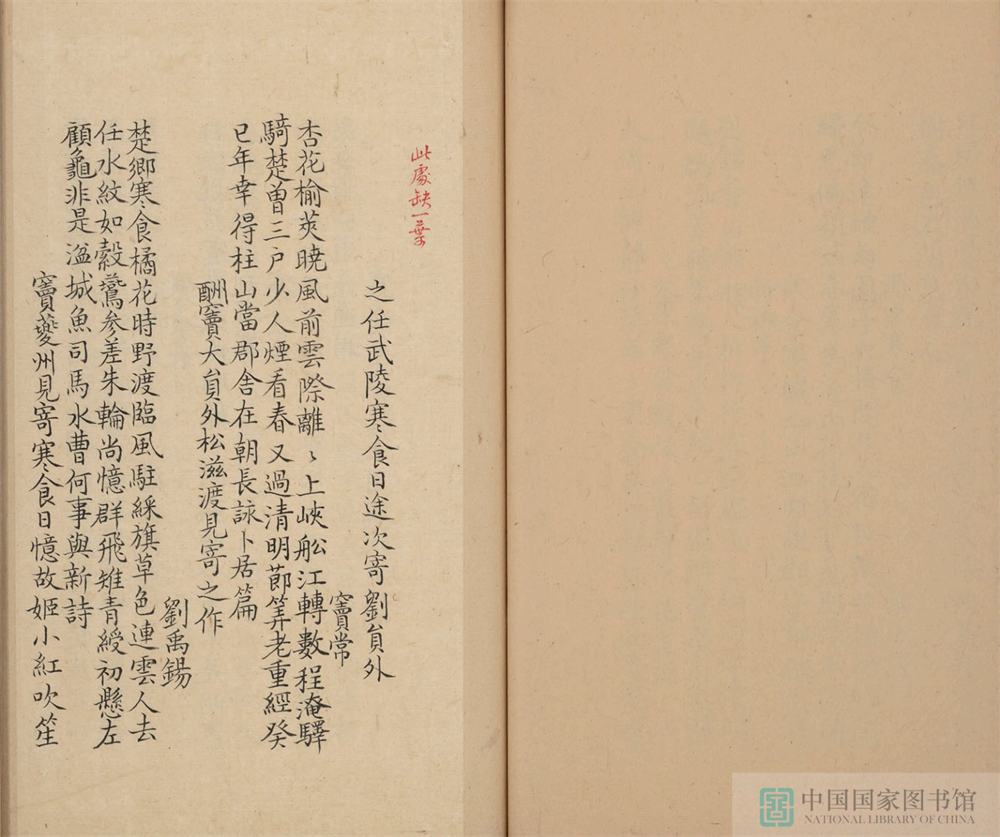 此處缺一葉
之任武陵寒食日途次寄劉貟外
竇常
杏花榆莢曉風前雲際離〻上峽舩江轉數程淹驛
騎楚曽三戶少人煙看春又過清明節筭老重經癸
巳年幸得柱山當郡舍在朝長詠卜居篇
酬竇大貟外松滋渡見寄之作
劉禹錫
楚鄉寒食橘花時野渡臨風駐綵旗草色連雲人去
任水紋如縠鷰參差朱輪尚憶群飛雉青綬初懸左
顧龜非是湓城魚司馬水曹何事與新詩
竇夔州見寄寒食日憶故姬小紅吹笙
中国国家图书馆
NATIONAL LIBRARY OF CHINA